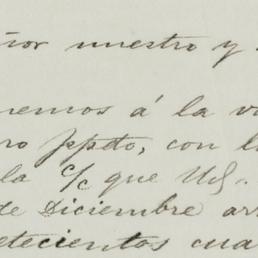 ñor nuestro y
nemos á la v
ro ppdo, con l
la c/c que Ud.
de Diciembre ar
etecientos cua